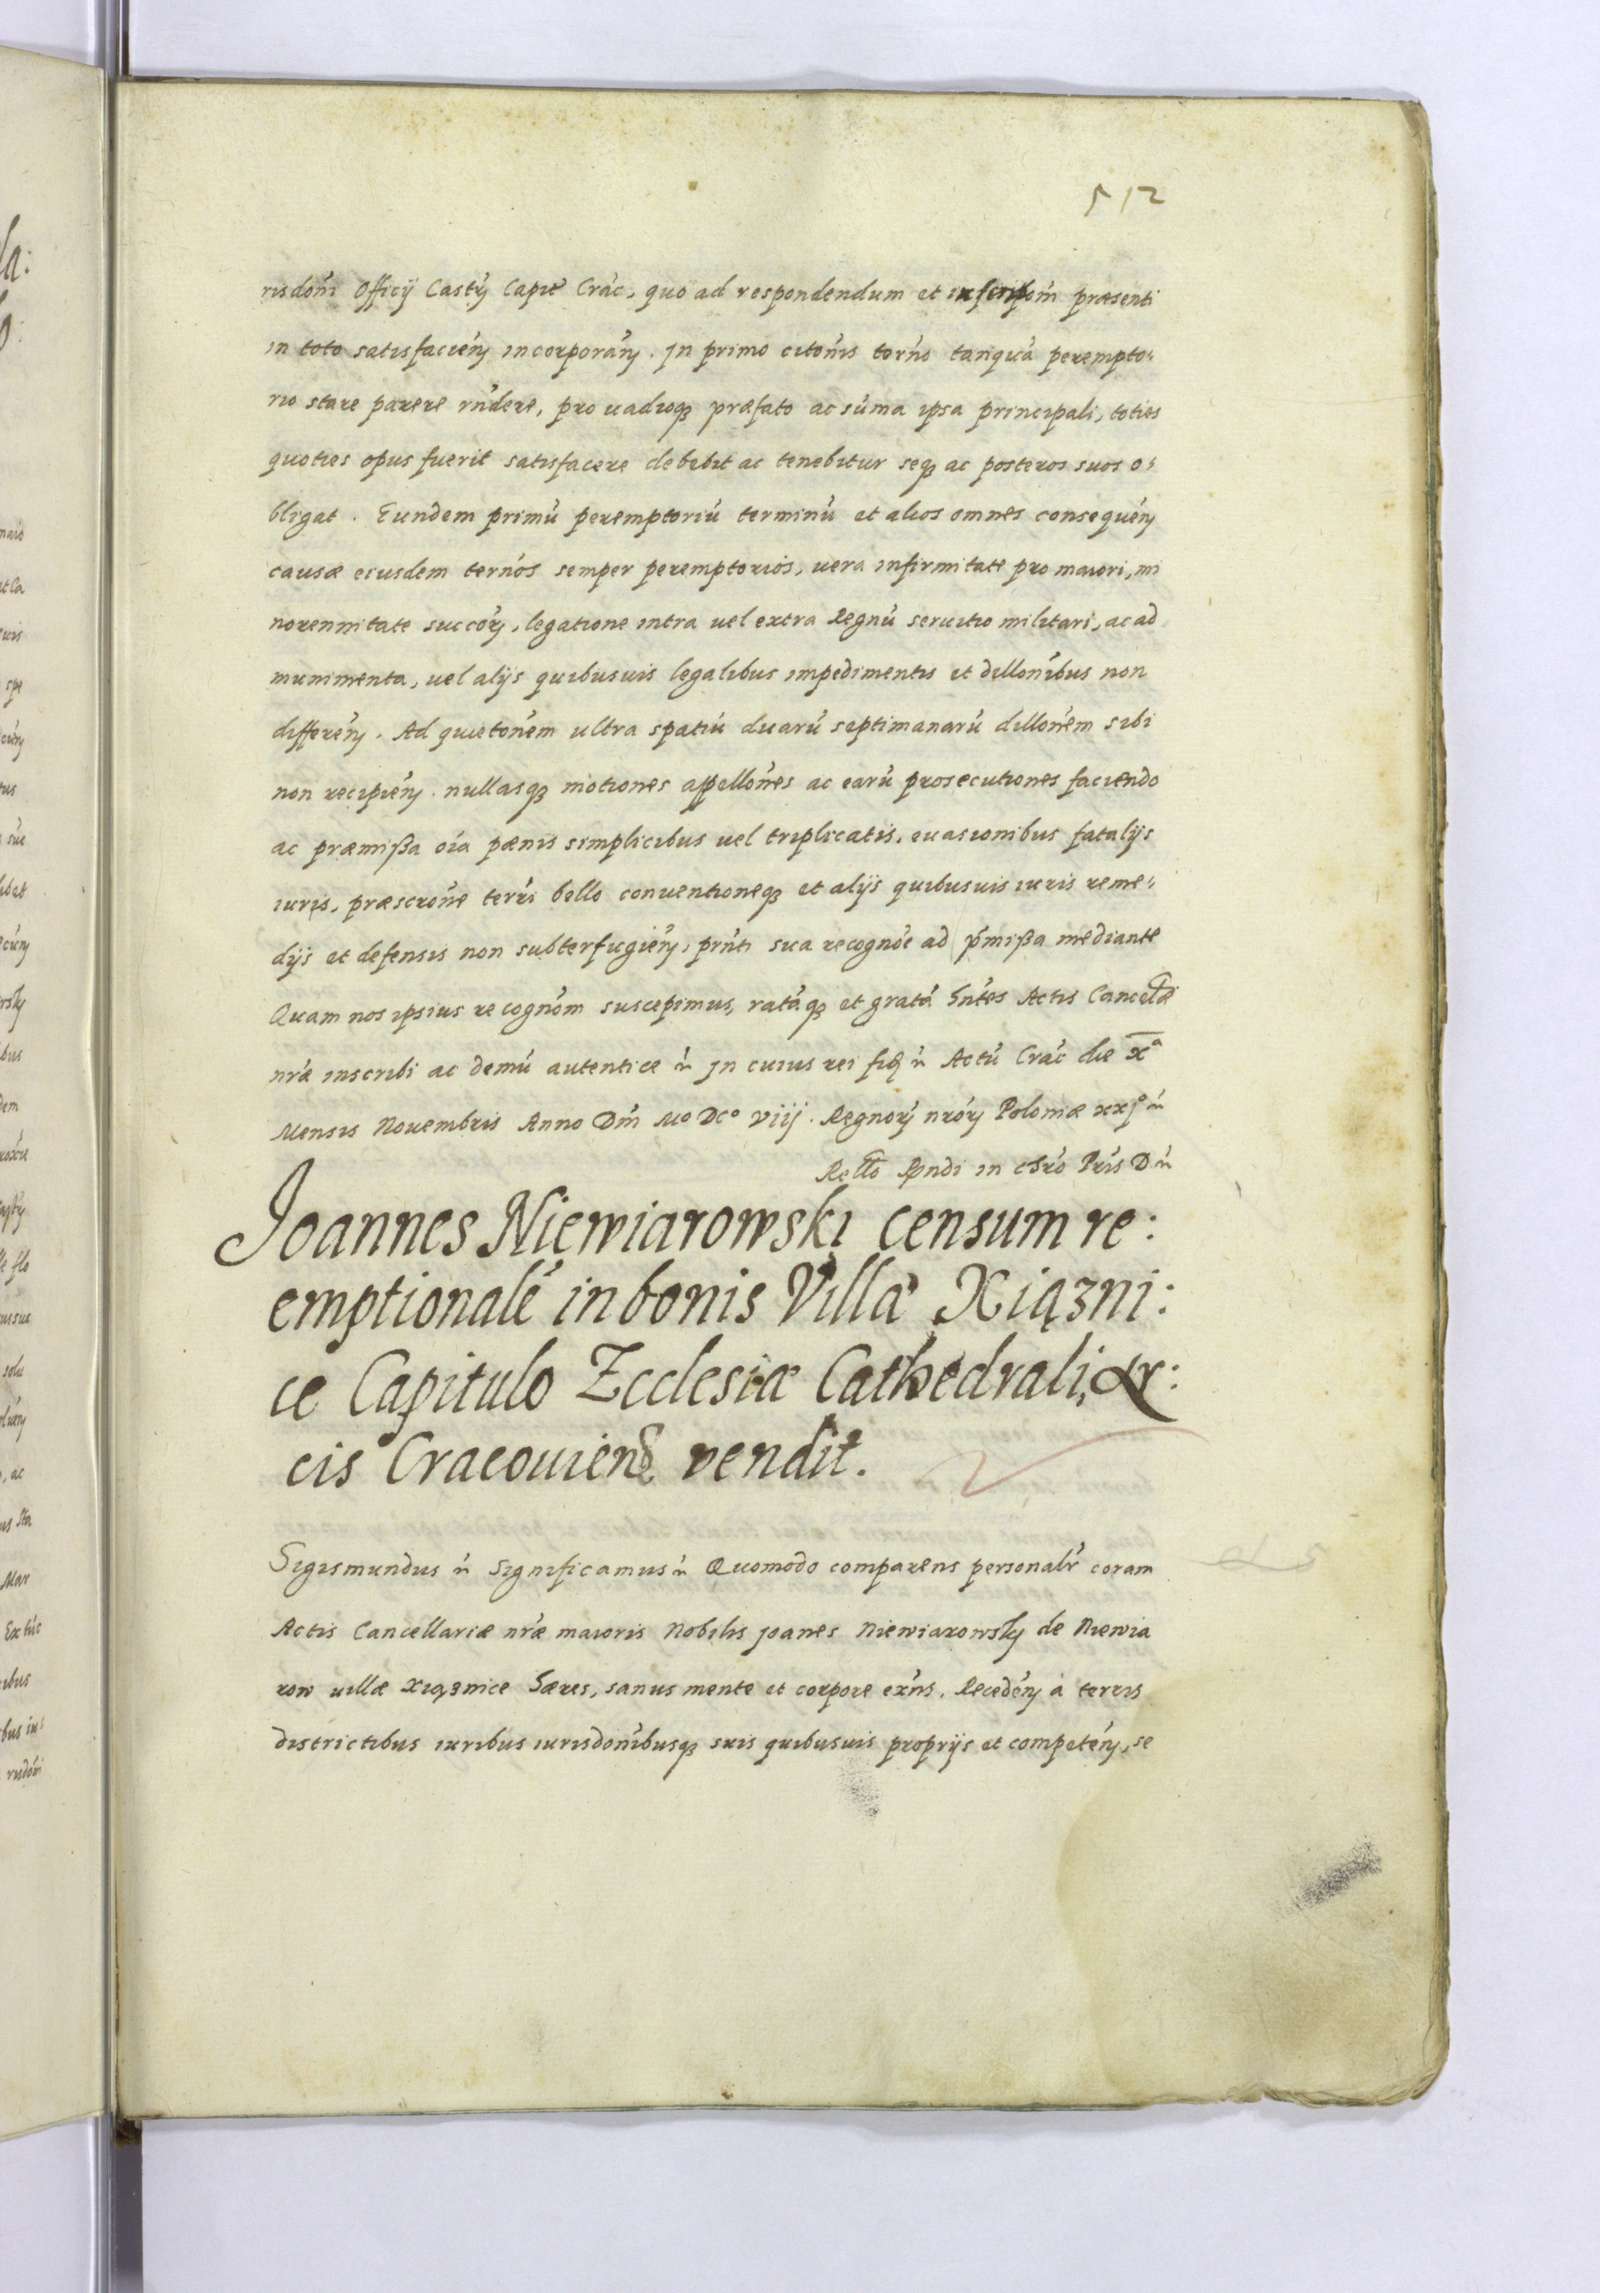 512
risdom̃ Officij Castr̃ Capiẽ Crac̃, quo ad respondendum et inscripom̃ præsenti
in toto satisfacień incorporań. Jn primo citonis̃ termo̊ tanquã perempto:
rio stare parere rñdere, pro vadioq3 præfato ac sum̃a ipsa principali, toties
quoties opus fuerit satisfacere debebit ac tenebitur seq3 ac posteros suos o:
bligat. Eundem primũ peremptoriũ terminũ et alios omnes consequeń
causæ eiusdem terños semper peremptorios, vera infirmitate pro maiori, mi
norennitate succor̃, legatione intra vel extra Regnũ seruitio militari, ac ad
munimenta, vel alijs quibusuis legalibus impedimentis et dillonĩbus non
differeń. Ad quietonẽm ultra spatiũ duarũ septimanarũ dillonẽm sibi
non recipień. nullasq3 motiones appellonẽs ac earũ prosecutiones faciendo
ac præmißa oĩa pænis simplicibus vel triplicatis, euasionibus fatalijs
iuris, præscronẽ terrĩ bello conuentioneq3 et alijs quibusuis iuris reme:
dijs et defensis non subterfugień, prñti sua recognoẽ ad p̃mißa mediante
Quam nos ipsius recognõm suscepimus, ratãq3 et gratã hñtes Actis Cancellæ
nr̃æ inscribi ac demũ autentice ñ Jn cuius rei fid̃ ñ Actũ Crac̃ die Xa
Mensis Nouembris Anno Dñi Mo Dco viij. Regnor̃ nrõr̃ Poloniæ xxjo ñ
Rello Rñdi in Chrõ Pr̃is D ñ
Joannes Niewiarowski censum re:
emptionalẽ in bonis Villæ Xiązni:
ce Capitulo Ecclesiæ Cathedrali, Ar:
cis Cracouien̄ vendit.
Sigismundus ñ Significamus ñ Quomodo comparens personalr̃ coram
Actis Cancellariæ nr̃æ maioris Nobilis Joanes Niewiarowsky de Niewia
row villæ Xiąznice hæres, sanus mente et corpore exñs. Recedeń à terris
districtibus iuribus iurisdonĩbusq3 suis quibusuis proprijs et competeń, se